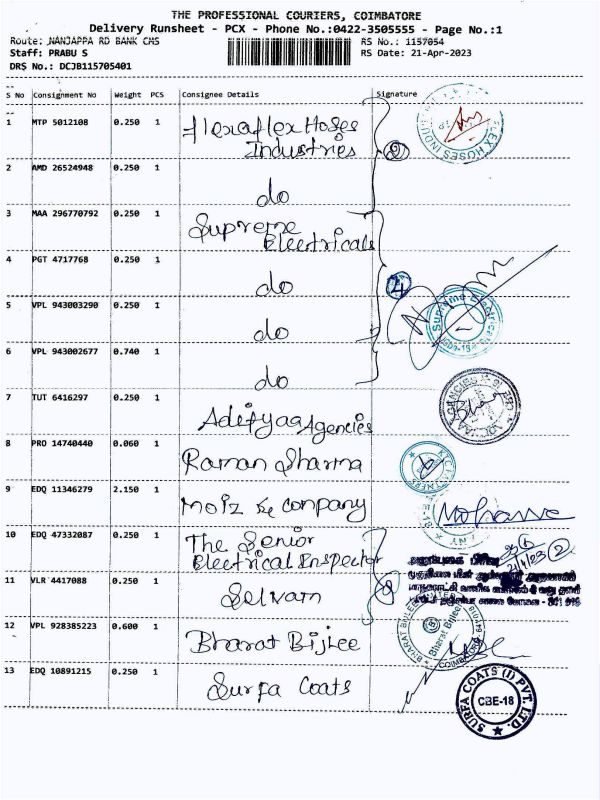 THE PROFESSIONAL COURIERS, COIMBATORE
Delivery Runsheet - PCX - Phone No.:0422-3505555 - Page No.:1
Route: NANJAPPA RD BANK CMS RS No.: 1157054
Staff: PRABU S RS Date: 21-Apr-2023
DRS No.: DCJB115705401
S No Consignment No Weight PCS Consignee Details Signature
1 MTP 5012108 0.250 1 flexaflex Hoses
Industries
2 AMD 26524948 0.250 1 do
3 MAA 296770792 0.250 1 Supreme
Electricals
4 PGT 4717768 0.250 1 do
4
5 VPL 943003290 0.250 1 do
Supreme Electricals
6 VPL 943002677 0.740 1 do
7 TUT 6416297 0.250 1 Adityaa Agencies
8 PRO 14740440 0.060 1 Raman Sharma
9 EDQ 11346279 2.150 1 Moiz & Company
10 EDQ 47332087 0.250 1 The Senior
Electrical Inspector
21/4/23 2
11 VLR 4417088 0.250 1 Selvam
12 VPL 928385223 0.600 1 Bharat Bijlee
Bharat Bijlee
13 EDQ 10891215 0.250 1 Surfa Coats
SURFA COATS (I) PVT. LTD.
CBE-18